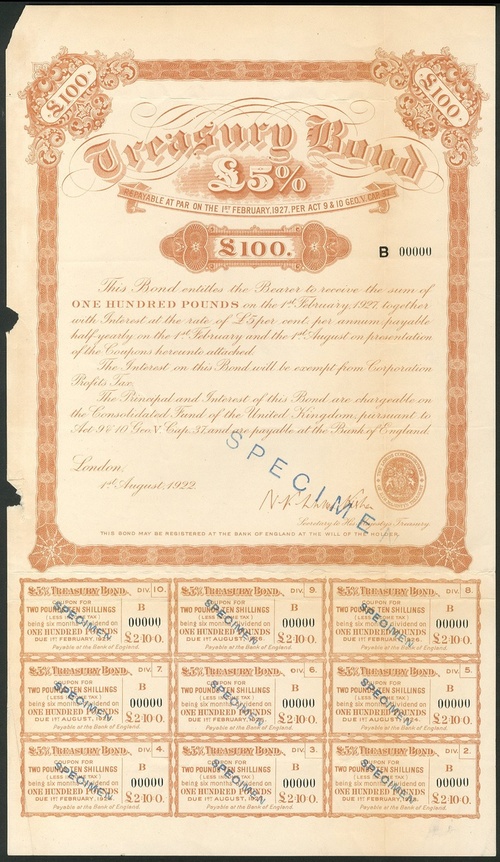 £100.
£100.
Treasury Bond
£5%
REPAYABLE AT PAR ON THE 1ST FEBRUARY, 1927, PER ACT 9 & 10 GEO. V. CAP. 37.
£100.
B 00000
This Bond entitles the Bearer to receive the sum of
ONE HUNDRED POUNDS on the 1st February, 1927, together
with Interest at the rate of £5 per cent. per annum payable
half-yearly on the 1st February and the 1st August on presentation
of the Coupons hereunto attached.
The Interest on this Bond will be exempt from Corporation
Profits Tax.
The Principal and Interest of this Bond are chargeable on
the Consolidated Fund of the United Kingdom, pursuant to
Act 9 & 10 Geo. V. Cap. 37, and are payable at the Bank of England.
SPECIMEN
London;
1st August, 1922.
Secretary to His Majesty's Treasury.
THIS BOND MAY BE REGISTERED AT THE BANK OF ENGLAND AT THE WILL OF THE HOLDER.
£5% TREASURY BOND. DIV. 10.
COUPON FOR
TWO POUNDS TEN SHILLINGS
( LESS INCOME TAX )
being six months dividend on
ONE HUNDRED POUNDS
DUE 1ST FEBRUARY, 1927.
Payable at the Bank of England.
B
00000
£2·10·0.
SPECIMEN
£5% TREASURY BOND. DIV. 9.
COUPON FOR
TWO POUNDS TEN SHILLINGS
( LESS INCOME TAX )
being six months dividend on
ONE HUNDRED POUNDS
DUE 1ST AUGUST, 1926.
Payable at the Bank of England.
B
00000
£2·10·0.
SPECIMEN
£5% TREASURY BOND. DIV. 8.
COUPON FOR
TWO POUNDS TEN SHILLINGS
( LESS INCOME TAX )
being six months dividend on
ONE HUNDRED POUNDS
DUE 1ST FEBRUARY, 1926.
Payable at the Bank of England.
B
00000
£2·10·0.
SPECIMEN
£5% TREASURY BOND. DIV. 7.
COUPON FOR
TWO POUNDS TEN SHILLINGS
( LESS INCOME TAX )
being six months dividend on
ONE HUNDRED POUNDS
DUE 1ST AUGUST, 1925.
Payable at the Bank of England.
B
00000
£2·10·0.
SPECIMEN
£5% TREASURY BOND. DIV. 6.
COUPON FOR
TWO POUNDS TEN SHILLINGS
( LESS INCOME TAX )
being six months dividend on
ONE HUNDRED POUNDS
DUE 1ST FEBRUARY, 1925.
Payable at the Bank of England.
B
00000
£2·10·0.
SPECIMEN
£5% TREASURY BOND. DIV. 5.
COUPON FOR
TWO POUNDS TEN SHILLINGS
( LESS INCOME TAX )
being six months dividend on
ONE HUNDRED POUNDS
DUE 1ST AUGUST, 1924.
Payable at the Bank of England.
B
00000
£2·10·0.
SPECIMEN
£5% TREASURY BOND. DIV. 4.
COUPON FOR
TWO POUNDS TEN SHILLINGS
( LESS INCOME TAX )
being six months dividend on
ONE HUNDRED POUNDS
DUE 1ST FEBRUARY, 1924.
Payable at the Bank of England.
B
00000
£2·10·0.
SPECIMEN
£5% TREASURY BOND. DIV. 3.
COUPON FOR
TWO POUNDS TEN SHILLINGS
( LESS INCOME TAX )
being six months dividend on
ONE HUNDRED POUNDS
DUE 1ST AUGUST, 1923.
Payable at the Bank of England.
B
00000
£2·10·0.
SPECIMEN
£5% TREASURY BOND. DIV. 2.
COUPON FOR
TWO POUNDS TEN SHILLINGS
( LESS INCOME TAX )
being six months dividend on
ONE HUNDRED POUNDS
DUE 1ST FEBRUARY, 1923.
Payable at the Bank of England.
B
00000
£2·10·0.
SPECIMEN